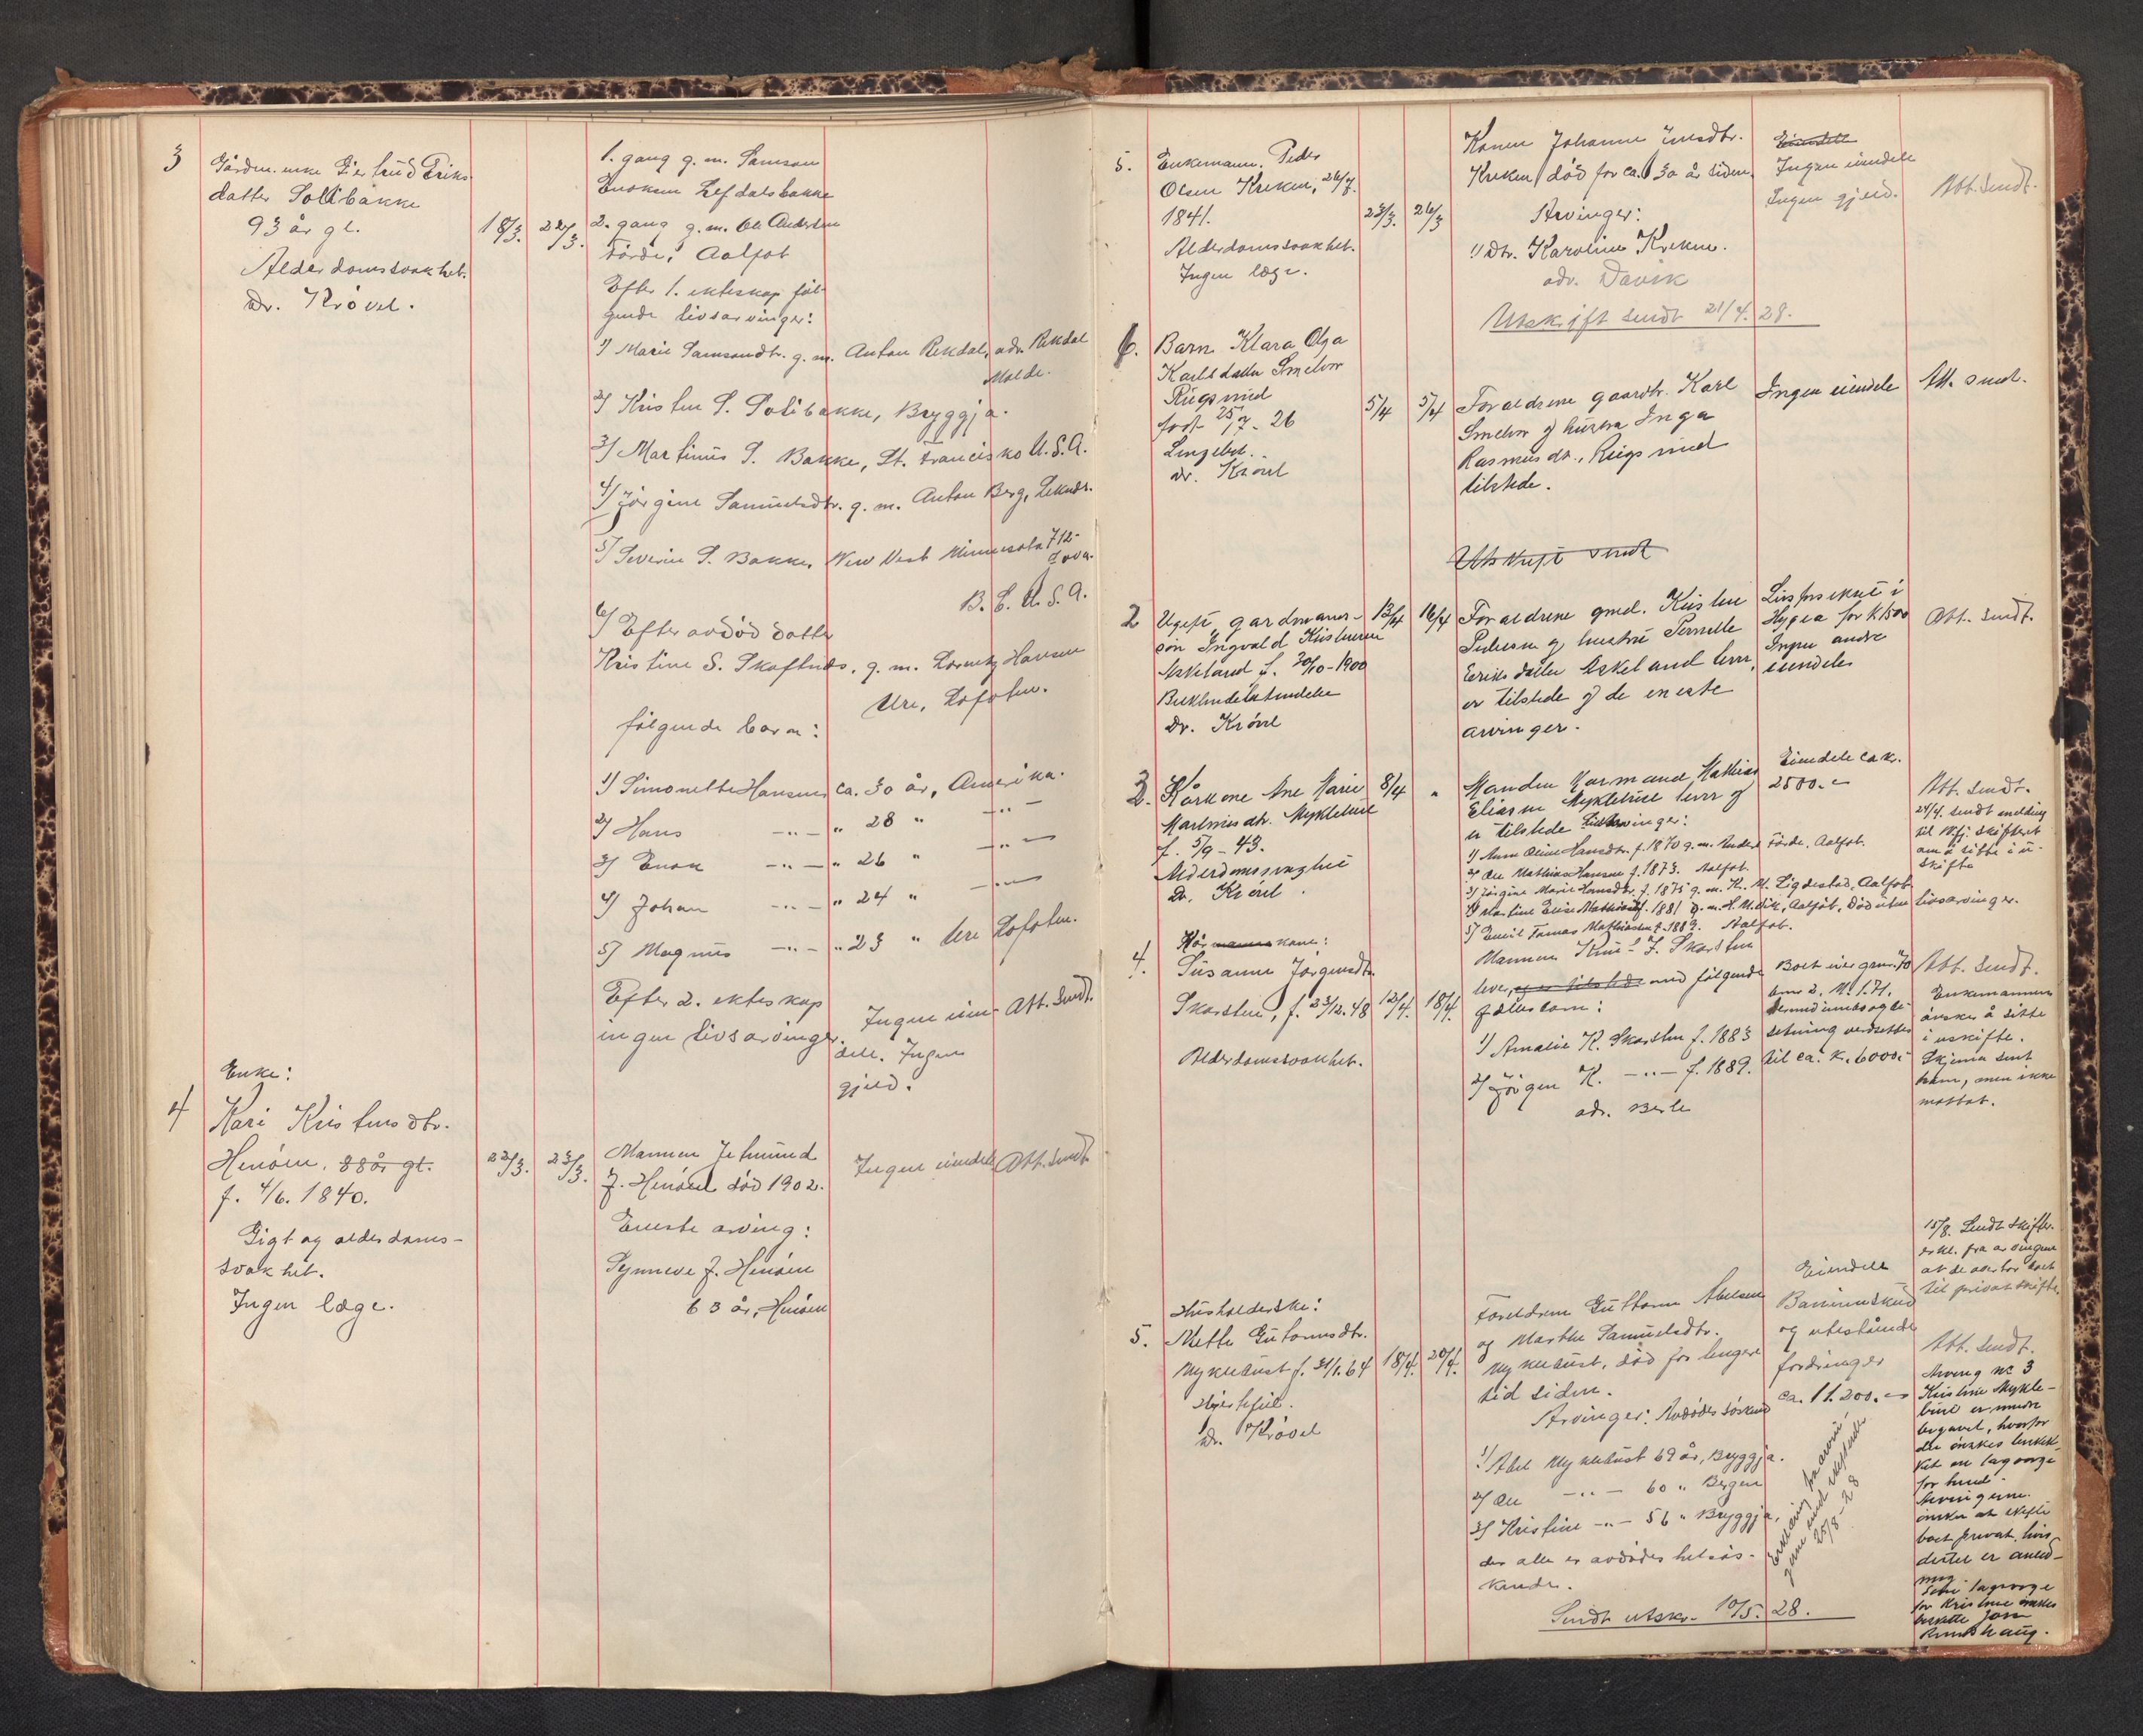 3
Gårdm. enke Gjertrud Eriks-
datter Sollibakke
93 år gl.
Alderdomssvakhet.
Dr. Krövel.
18/3.
22/3.
1. gang g. m. Samson
Enoksen Lefdalsbakke
2. gang g. m. Ole Andersen
Förde, Aalfot
Efter 1. ekteskap föl-
gende livsarvinger:
1) Marie Samsondtr. g. m. Anton Rekdal, adr. Rekdal
Molde.
2) Kristen S. Solibakke, Bryggja.
3) Martinus S. Bakke, St. Francisko U.S.A.
4) Jörgine Samuelsdtr. g. m. Anton Berg,
5) Severin S. Bakke, New Vest Minnesota 712-
B. C. U. S. A.
6) Efter avdöd datter
Kristine S. Skaftnes, g. m. Hansen
Ure, Lofoten.
fölgende barn:
1) Simonette Hansen ca. 30 år, Amerika.
2) Hans -"- " 28 " -"-
3) Enok -"- " 26 " -"-
4) Johan -"- " 24 " -"-
5) Magnus -"- " 23 " Ure Lofoten.
Efter 2. ekteskap
ingen livsarvinger.
Ingen eien-
dele. Ingen
gjeld.
Att. sendt.
Enke:
4
Kari Kristensdtr.
Henöen. 88 år gl.
f. 4/6. 1840.
Gigt og alderdoms-
svakhet.
Ingen læge.
22/3.
23/3.
Mannen Jetmund
J. Henöen död 1902.
Eneste arving:
Synneve J. Henöen
63 år, Henöen
Ingen eiendele
Att. sendt
5.
Enkemann. Peder
Olsen Kreken, 26/7.
1841.
Alderdomssvakhet.
Ingen læge.
23/3.
26/3
Konen Johanne Ensdtr.
Kreken död for ca. 30 år siden.
Arvinger:
1) Dtr. Karoline Kreken.
adr. Davik
Utskrift sendt 21/4. 28.
Eiendele
Ingen eiendele
Ingen gjeld.
Att. sendt.
6.
Barn. Klara Olga
Karlsdatter Smehm
Rugsund
født 25/7-26
dr. Krövel
5/4
5/4
Foraldrene gaardbr. Karl
Smehm og hustru Inga
Rasmusdt., Rugsund
tilstede.
Ingen eiendele
Att. sendt.
Utskrift sendt
2
Ugift, gardmanns-
sön Ingvald Kristensen
Askeland f. 30/10-1900
Dr. Krövel
13/4
16/4
Foraldrene gmd. Kristen
Pedersen og hustru Pernelle
Eriksdatter Askeland lever,
er tilstede og de eneste
arvinger.
Livsforsikret i
Hygea for k 1500
Ingen andre
eiendeler
Att. sendt.
3.
Kårkone Ane Marie
Martinusdtr. Myklebust
f. 5/9-43.
Dr. Krövel.
8/4
"
Manden Karmand Mathias
Eliassen Myklebust lever og
er tilstede Livsarvinger:
1) Anne Oline Hansdtr. f. 1870 g. m. Anders Förde, Aalfot.
2) Ole Mathias Hansen f. 1873. Aalfot.
3) Jörgine Marie Hansdtr. f. 1875 g. m. K. M. Ligdestad, Aalfot
4) Martine Elise Mathiasdtr. 1881 g. m. H. M. Eik, Aalfot, död uten livsarvinger.
5) Emil Tomas Mathiassen f. 1883. Aalfot.
Eiendele ca kr.
2500.-
Att. sendt.
24/4. sendt melding
til N.fj. skifteret
om å sitte i u-
skifte
4.
Kårmanns kone:
Susanne Jörgensdtr.
Skorsten, f. 23/12. 48
Alderdomssvakhet.
12/4.
18/4.
Mannen Knut J. Skorsten
lever, og er tilstede med fölgende
fellesbarn:
1) Amalie K. Skorsten f. 1883
2) Jörgen K. -"- f. 1889.
adr. Berle
Boet eier grnr. 70
bnr 2. M. 1.71.
Dermed
setning verdsettes
til ca. k. 6000.-
Att. sendt.
Enkemannen
önsker å sitte
i uskifte.
Skjema sent
ham, men ikke
mottat.
5.
Husholderske:
Mette Guttormsdtr.
Myklebust f. 31/1. 64
Hjertefeil.
Dr. Krövel
18/4.
20/4.
Foreldrene Guttorm Abelsen
og Marthe Samuelsdtr.
Myklebust, död for lengere
tid siden.
Arvinger: Avdödes sösken
1) Abel Myklebust 69 år, Bryggja.
2) Ole -"- 60 " Bergen
3) Kristine -"- 56 " Bryggja,
der alle er avdödes helsös-
kende.
Sendt utskr. 10/5. 28.
Eiendele
Bankinnskud
og utestående
fordringer
ca. 11.200.-
Erklæring fra arvin-
gerne sendt skifteretten
25/8-28
15/8. Sendt skifte-
erkl. fra arvingene
at de overtar boet
til privat skifte.
Att. sendt.
Arving nr. 3
Kristine Mykle-
bust er mindre
begavet, hvorfor
der önskes beskik-
ket en lagverge
for hende.
Arvingerne
önsker at skifte
boet privat, hvis
dertil er anled-
ning.
Som lagverge
for Kristine önskes
beskikket Jon